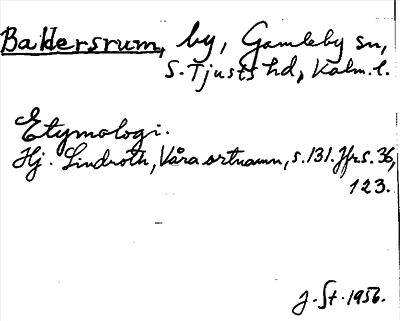 Baldersrum, by, Gamleby sn,
S. Tjusts hd, Kalm. l.
Etymologi.
Hj. Lindroth, Våra ortnamn, s. 131. Jfr s. 36,
123.
J. St. 1956.